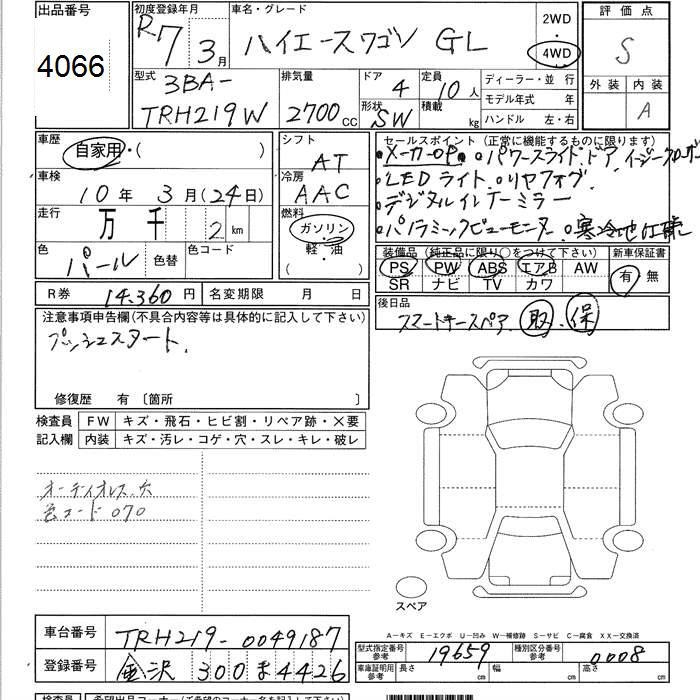 出品番号
4066
初度登録年月
R7 3月
車名・グレード
ハイエースワゴン GL
2WD
4WD
評価点
S
外装 内装
A
型式
3BA-
TRH219W
排気量
2700 CC
ドア
4
形状
SW
定員
10人
積載
kg
ディーラー・並 行
モデル年式 年
ハンドル 左・右
車歴
自家用・( )
車検
10年 3月(24日)
走行
万 千 2 km
色
パール
色替
色コード
シフト
AT
冷房
AAC
燃料
ガソリン
軽・油
( )
セールスポイント (正常に機能するものに限ります)
・メーカーOP。。パワースライドドア イージークローザー
・LEDライト.リヤフォグ.
・デジタルインナーミラー
・パノラミックビューモニター。寒冷地仕様
装備品 (純正品に限り○をつけて下さい)
PS PW ABS エアB AW
SR ナビ TV カワ
新車保証書
有 無
R券 14.360円
名変期限 月 日
後日品
スマートキースペア. 取. 保
注意事項申告欄(不具合内容等は具体的に記入して下さい)
プッシュスタート.
修復歴 有 〔箇所 〕
検査員 記入欄
FW キズ・飛石・ヒビ割・リペア跡・×要
内装 キズ・汚レ・コゲ・穴・スレ・キレ・破レ
オーディオレス.穴
色コード 070
スペア
A-キズ E-エクボ U-凹み W-補修跡 S-サビ C-腐食 XX-交換済
車台番号 TRH219-0049187
登録番号 金沢 300 ま 4426
型式指定番号 参考 19659
種別区分番号 参考 0008
車庫証明用 参考 長さ cm 幅 cm 高さ cm
検査員 希望出品コーナー(ご希望のコーナー名を記入して下さい)